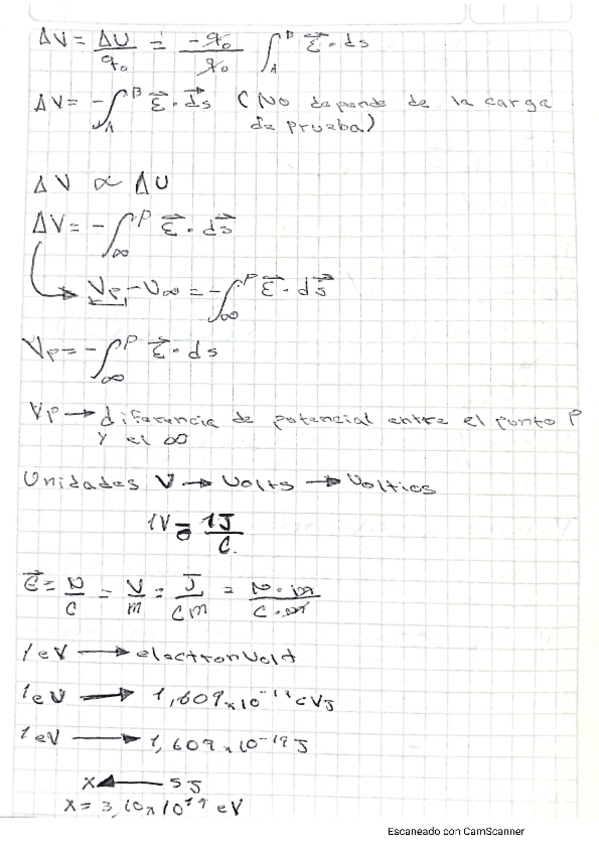 ΔV = ΔU/q₀ = -q₀/q₀ ∫_A^B ε⃗ · ds
ΔV = -∫_A^B ε⃗ · ds⃗ (No depende de la carga
de prueba)
ΔV ∝ ΔU
ΔV = -∫_∞^P ε⃗ · ds⃗
→ Vp - V∞ = -∫_∞^P ε⃗ · ds⃗
Vp = -∫_∞^P ε⃗ · ds
Vp → diferencia de potencial entre el punto P
y el ∞
Unidades V → Volts → Voltios
1V = 1J/C.
ε⃗ = N/C = V/m = J/Cm = N·m/C·m
1eV → electronVolt
1eV → 1,609x10⁻¹⁹ CVJ
1eV → 1,609x10⁻¹⁹J
X ← 5J
X = 3,10x10¹⁹ eV
Escaneado con CamScanner